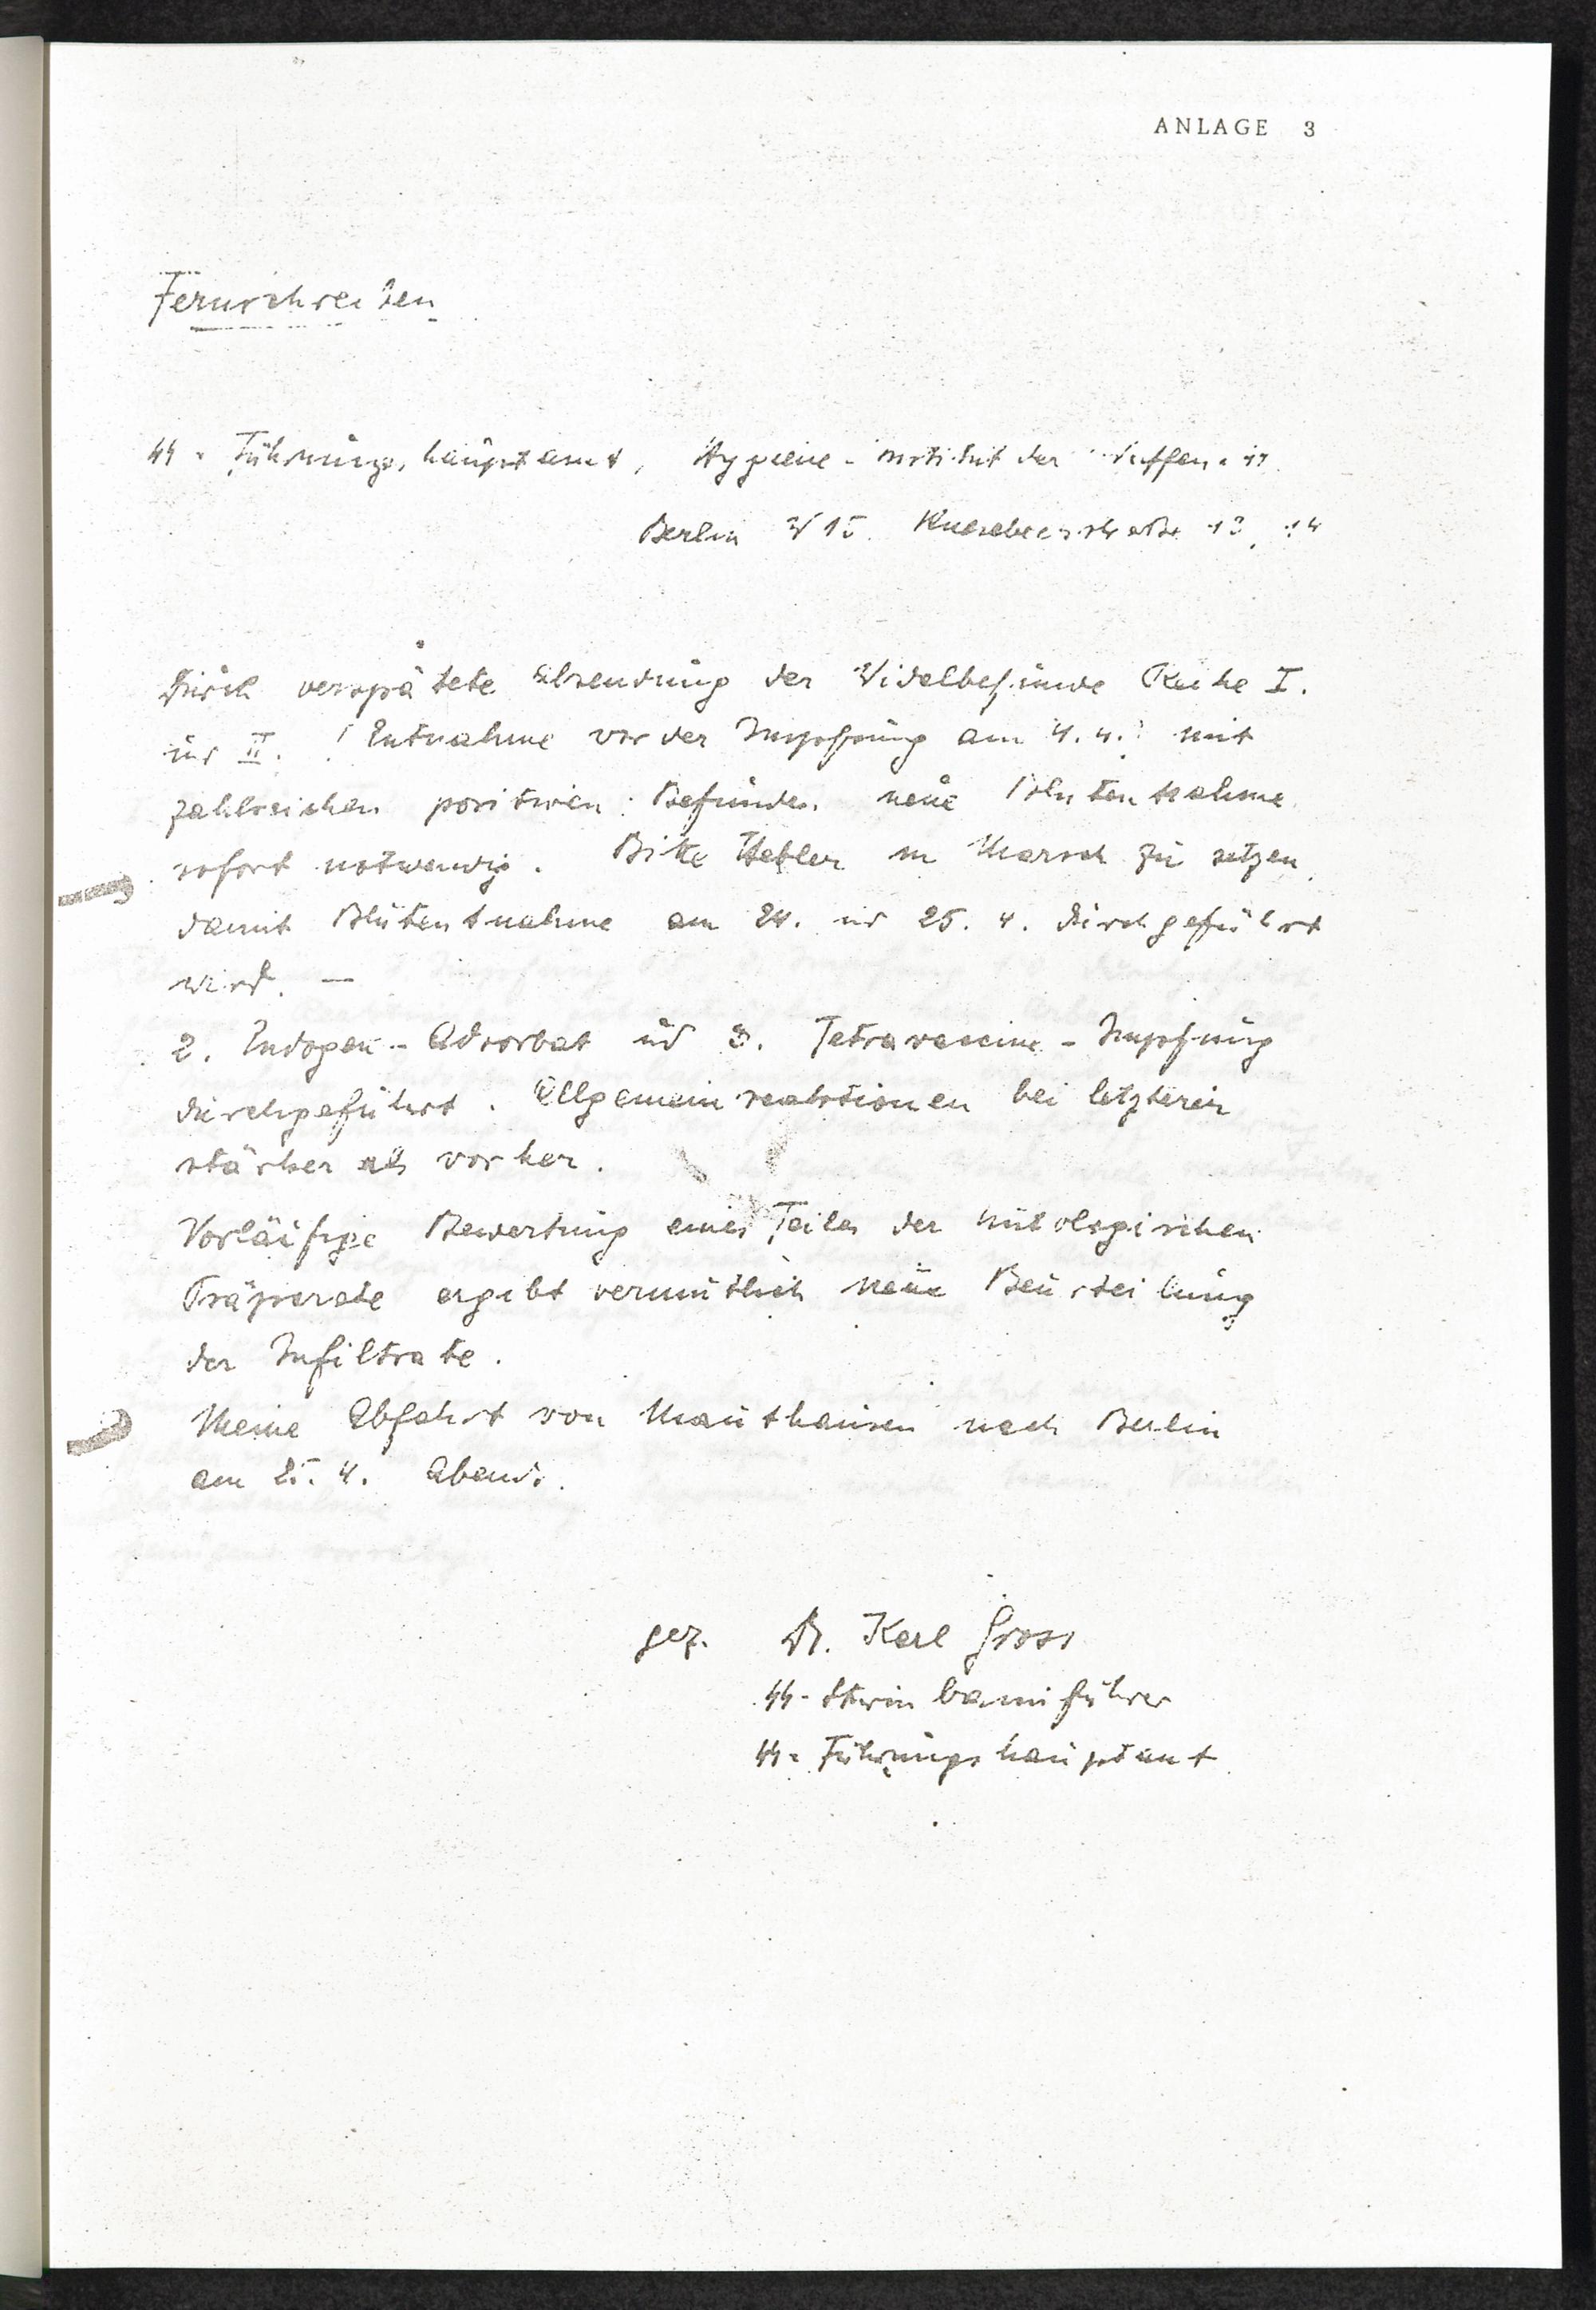 ANLAGE 3
Fernschreiben
SS-Führungshauptamt, Hygiene-Institut der Waffen-SS
Berlin W 15. Knesebeckstraße 13, 14
Durch verspätete Absendung der Vidalbefunde Reihe I.
und II. (Entnahme vor der Impfung am 4.4.) mit
zahlreichen positiven Befunden neue Blutentnahme
sofort notwendig. Bitte in Marsch zu setzen,
damit Blutentnahme am 24. und 25. 4. durchgeführt
wird. —
2. -Adsorbat und 3. Tetravaccine-Impfung
durchgeführt. Allgemeinreaktionen bei letzterer
stärker als vorher.
Vorläufige Bewertung eines Teiles der histologischen
Präparate ergibt vermutlich neue Beurteilung
der Infiltrate.
Meine Abfahrt von Mauthausen nach Berlin
am 25. 4. Abends.
gez. Dr. Karl Gross
SS-Sturmbannführer
SS-Führungshauptamt